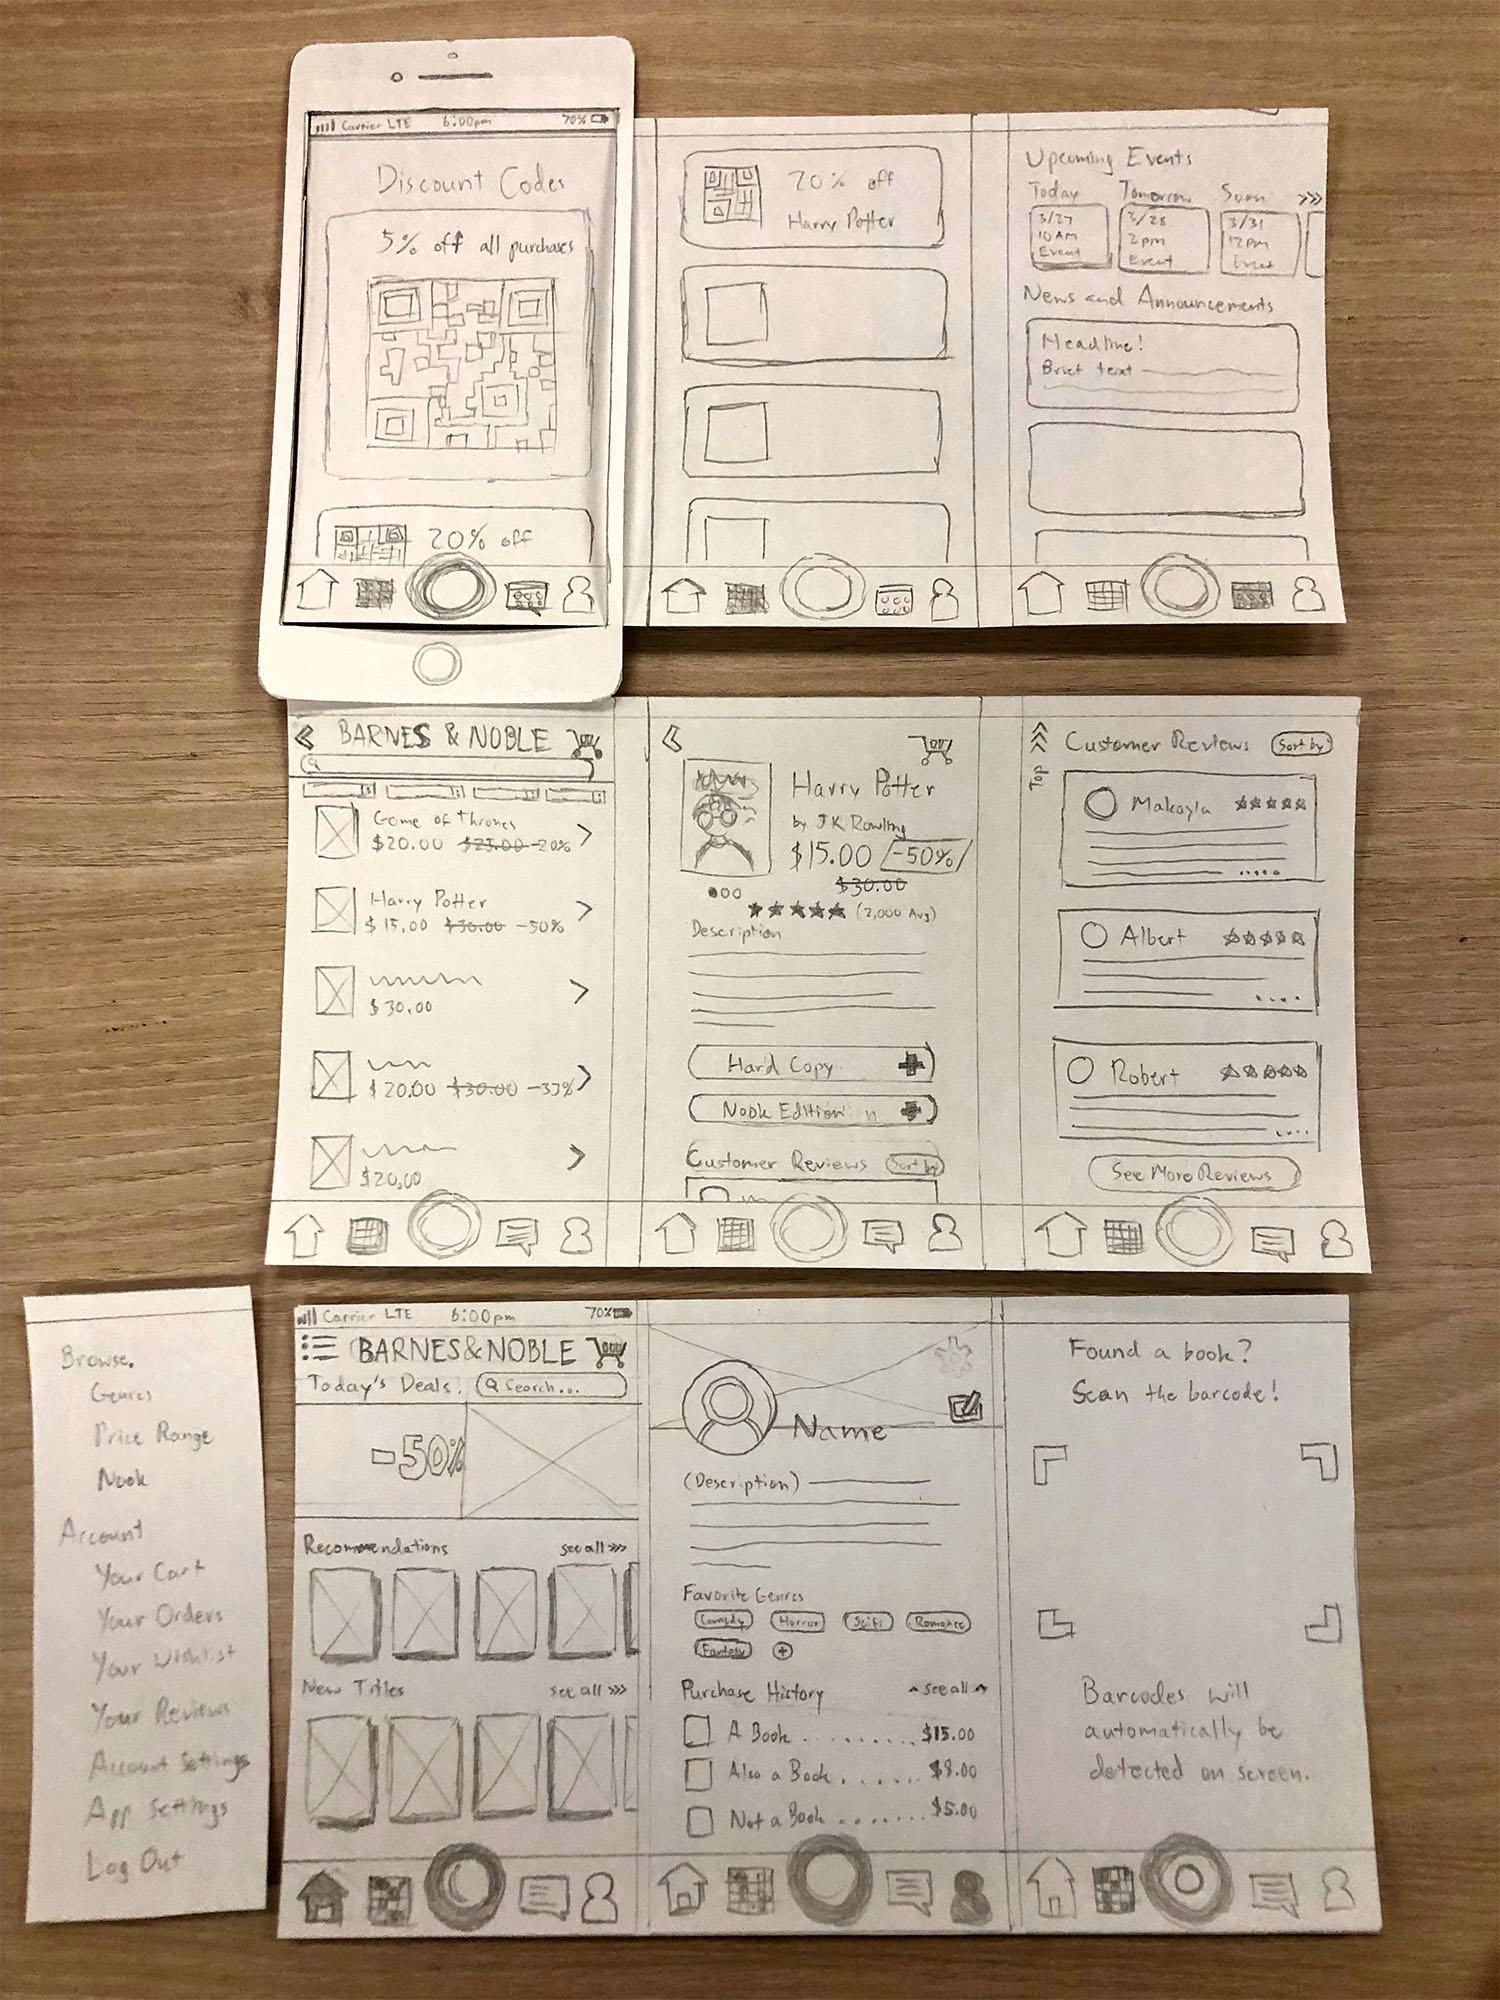 Carrier LTE 6:00pm 70%
Discount Codes
5% off all purchases
20% off
20% off
Harry Potter
Upcoming Events
Today Tomorrow Soon >>>
3/27 3/28 3/31
10 AM 2 pm 12 pm
Event Event Event
News and Announcements
Headline!
Brief text
< BARNES & NOBLE
Game of Thrones
$20.00 $25.00 -20% >
Harry Potter
$15.00 $30.00 -50% >
>
$30.00
$20.00 $30.00 -33% >
>
$20.00
<
Harry Potter
by JK Rowling
$15.00 -50%
$30.00
★★★★★ (2,000 Avg)
Description
Hard Copy +
Nook Edition +
Customer Reviews Sort by
Top
Customer Reviews Sort by
Makayla ☆☆☆☆☆
Albert ☆☆☆☆☆
Robert ☆☆☆☆☆
See More Reviews
Browse.
Genres
Price Range
Nook
Account
Your Cart
Your Orders
Your Wishlist
Your Reviews
Account Settings
App Settings
Log Out
Carrier LTE 6:00pm 70%
BARNES & NOBLE
Today's Deals. Search...
-50%
Recommendations see all >>>
New Titles see all >>>
Name
(Description)
Favorite Genres
Comedy Horror Scifi Romance
Fantasy +
Purchase History ^ see all ^
A Book ......... $15.00
Also a Book ...... $8.00
Not a Book ....... $5.00
Found a book?
Scan the barcode!
Barcodes will
automatically be
detected on screen.